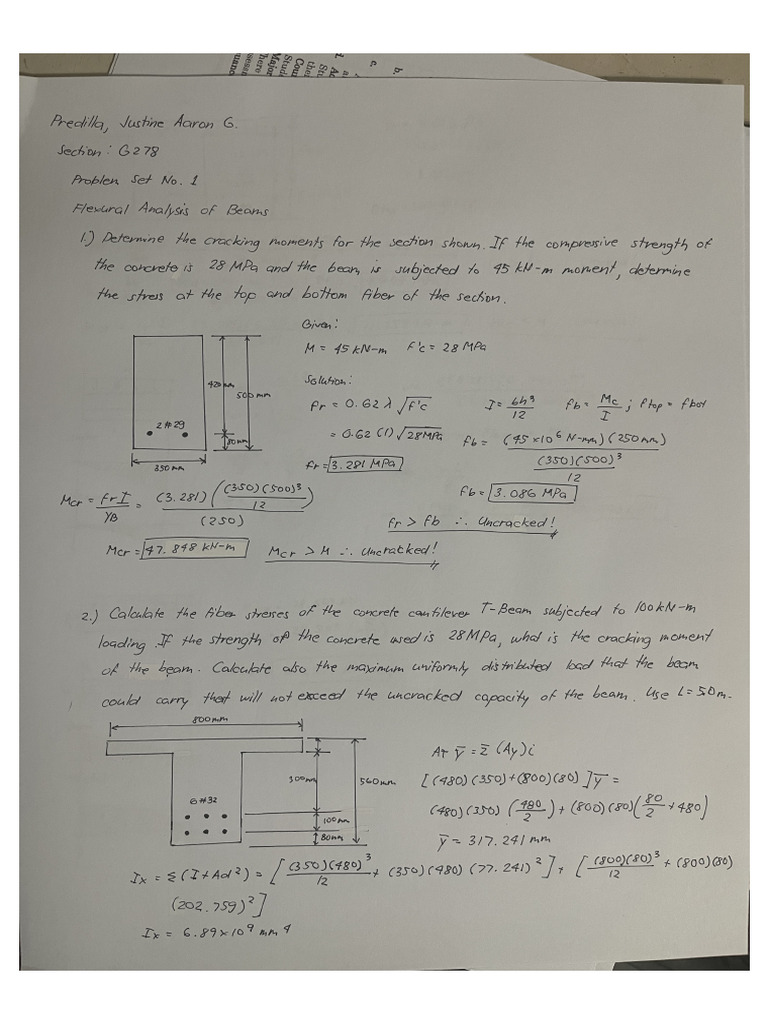 b.
a.
Predilla, Justine Aaron G.
Section: G278
Problem Set No. 1
Flexural Analysis of Beams
1.) Determine the cracking moments for the section shown. If the compressive strength of
the concrete is 28 MPa and the beam is subjected to 45 kN-m moment, determine
the stress at the top and bottom fiber of the section.
Given:
M = 45 kN-m f'c = 28 MPa
Solution:
fr = 0.62 λ √f'c
= 0.62 (1) √28MPa
fr = 3.281 MPa
I = bh³/12
fb = Mc/I ; ftop = fbot
fb = (45 x10⁶ N-mm) (250 mm) / ((350)(500)³/12)
fb = 3.086 MPa
fr > fb ∴ Uncracked!
420 mm
500 mm
2#29
80mm
350 mm
Mcr = FrI/YB = (3.281) ((350)(500)³/12) / (250)
Mcr = 47.848 kN-m
Mcr > M ∴ Uncracked!
2.) Calculate the fiber stresses of the concrete cantilever T-Beam subjected to 100kN-m
loading. If the strength of the concrete used is 28MPa, what is the cracking moment
of the beam. Calculate also the maximum uniformly distributed load that the beam
could carry that will not exceed the uncracked capacity of the beam. Use L = 5.0 m.
800mm
300mm
560mm
6#32
100mm
80mm
AT ȳ = Σ (Ay)i
[(480)(350)+(800)(80)]ȳ =
(480)(350) (480/2) + (800)(80)(80/2 + 480)
ȳ = 317.241 mm
Ix = Σ (I+Ad²) = [(350)(480)³/12 + (350)(480) (77.241)²] + [(800)(80)³/12 + (800)(80)
(202.759)²]
Ix = 6.89x10⁹ mm⁴